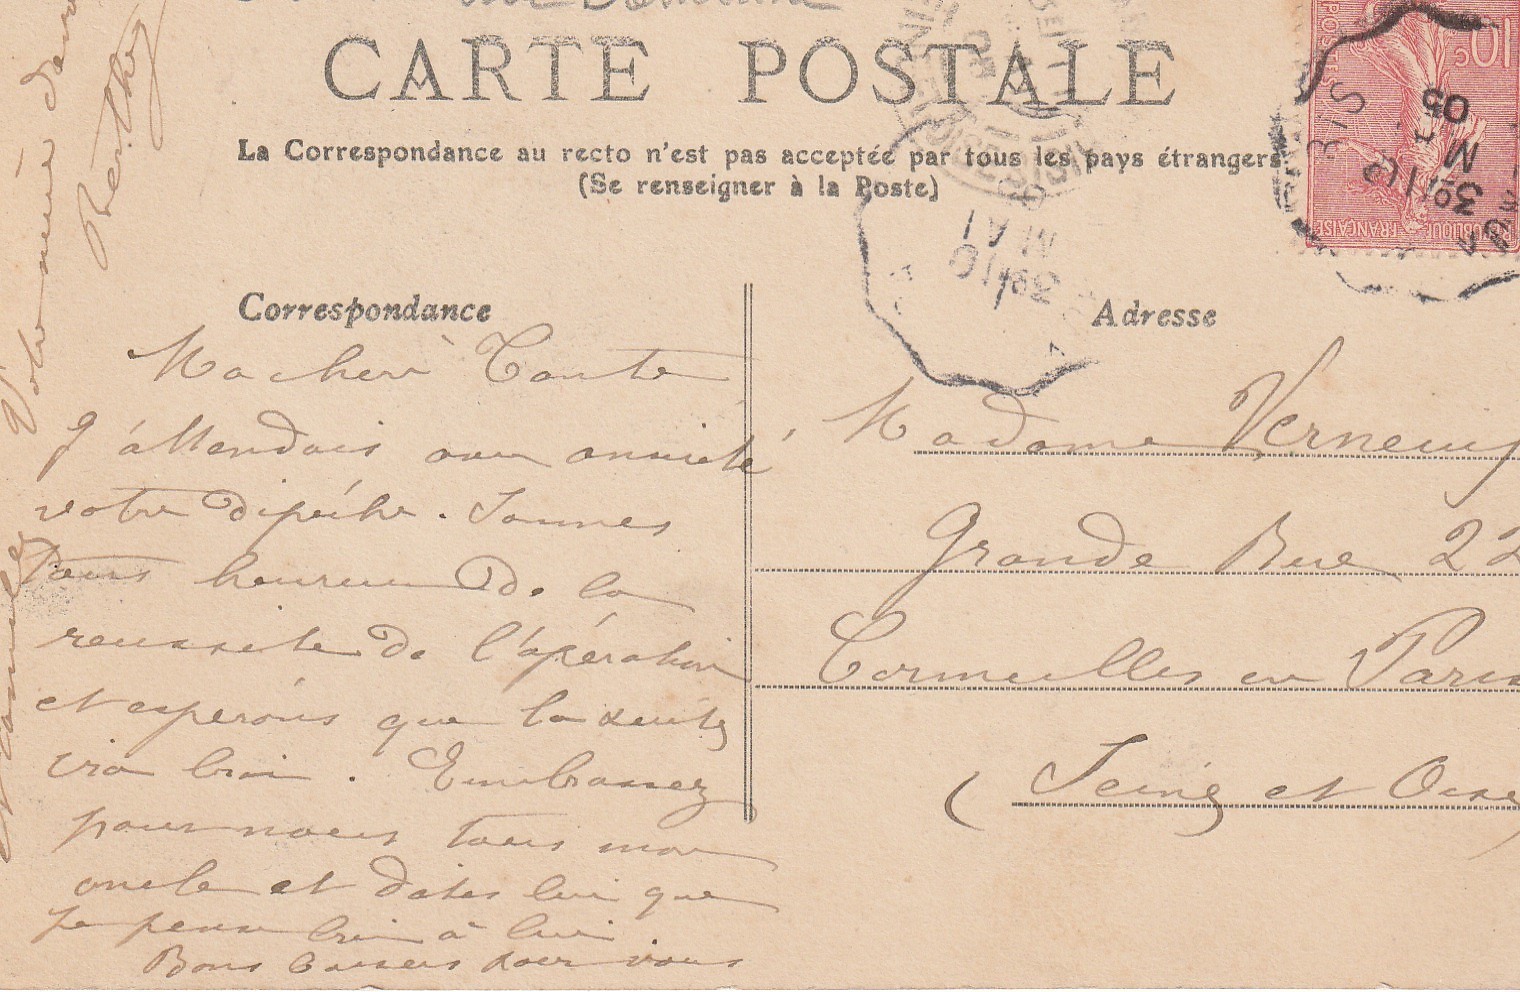 CARTE POSTALE
La Correspondance au recto n'est pas acceptée par tous les pays étrangers
(Se renseigner à la Poste)
Correspondance
Ma cherè Tante
J'áttendais avec anxieté
votre dipêche. Sommes
tous heureux de la
reussite de l'opération
et esperons que la suite
ira bien. Embrassez
pour nous tous mon
oncle et dites lui que
je pense bien à lui
Bons baisers pour vous
Votre nièce
Berthe
Adresse
Madame Verneuil
Grande Rue 22
Cormeilles en Paris
(Seine et Oise)
10c
POSTES
REPUBLIQUE FRANÇAISE
05
MAI